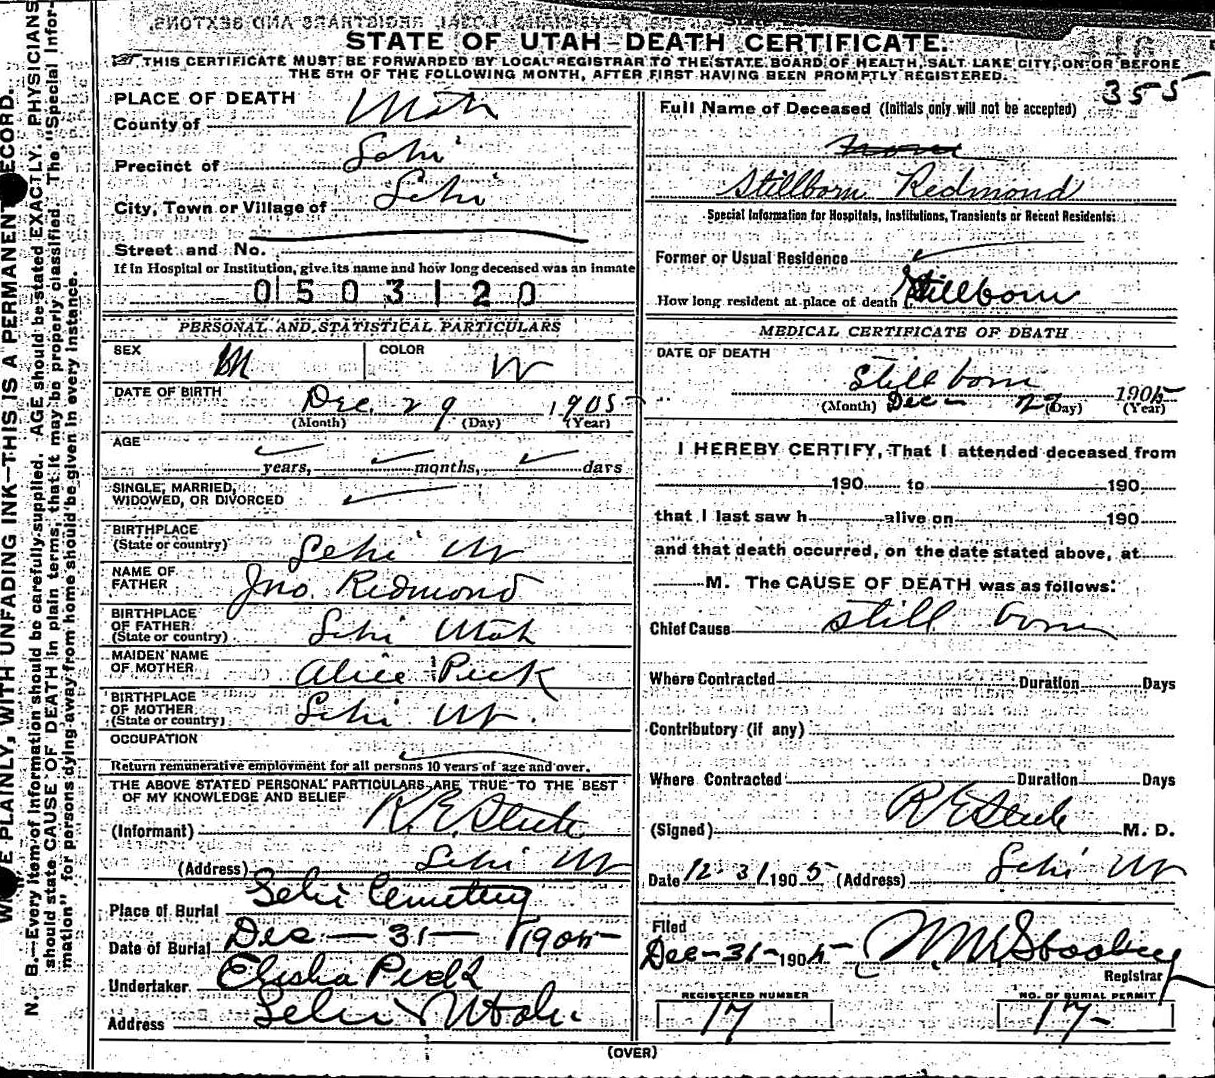 STATE OF UTAH—DEATH CERTIFICATE.
THIS CERTIFICATE MUST BE FORWARDED BY LOCAL REGISTRAR TO THE STATE BOARD OF HEALTH, SALT LAKE CITY, ON OR BEFORE
THE 5TH OF THE FOLLOWING MONTH, AFTER FIRST HAVING BEEN PROMPTLY REGISTERED.
355
PLACE OF DEATH
County of Utah
Precinct of Lehi
City, Town or Village of Lehi
Street and No.
If in Hospital or Institution, give its name and how long deceased was an inmate
0503120
PERSONAL AND STATISTICAL PARTICULARS
SEX M COLOR W
DATE OF BIRTH Dec. 29 1905
(Month) (Day) (Year)
AGE
years, months, days
SINGLE, MARRIED,
WIDOWED, OR DIVORCED
BIRTHPLACE
(State or country) Lehi Ut
NAME OF
FATHER Jno. Redmond
BIRTHPLACE
OF FATHER
(State or country) Lehi Utah
MAIDEN NAME
OF MOTHER Alice Peck
BIRTHPLACE
OF MOTHER
(State or country) Lehi Ut.
OCCUPATION
Return remunerative employment for all persons 10 years of age and over.
THE ABOVE STATED PERSONAL PARTICULARS ARE TRUE TO THE BEST
OF MY KNOWLEDGE AND BELIEF
(Informant) R. E. Steele
(Address) Lehi Ut
Place of Burial Lehi Cemetery
Date of Burial Dec — 31 — 1905
Undertaker Elisha Peck
Address Lehi Utah
Full Name of Deceased (Initials only will not be accepted)
Stillborn Redmond
Special Information for Hospitals, Institutions, Transients or Recent Residents:
Former or Usual Residence
How long resident at place of death Stillborn
MEDICAL CERTIFICATE OF DEATH
DATE OF DEATH
Still born
Dec — 29 1905
(Month) (Day) (Year)
I HEREBY CERTIFY, That I attended deceased from
190 to 190
that I last saw h alive on 190
and that death occurred, on the date stated above, at
M. The CAUSE OF DEATH was as follows:
Chief Cause still born
Where Contracted Duration Days
Contributory (if any)
Where Contracted Duration Days
(Signed) R E Steele M. D.
Date 12-31 1905 (Address) Lehi Ut
Filed
Dec-31-1905
Registrar
REGISTERED NUMBER
17
NO. OF BURIAL PERMIT
17-
(OVER)
E PLAINLY, WITH UNFADING INK—THIS IS A PERMANENT RECORD.
N. B.—Every item of information should be carefully supplied. AGE should be stated EXACTLY. PHYSICIANS
should state CAUSE OF DEATH in plain terms, that it may be properly classified. The "Special Infor-
mation" for persons dying away from home should be given in every instance.